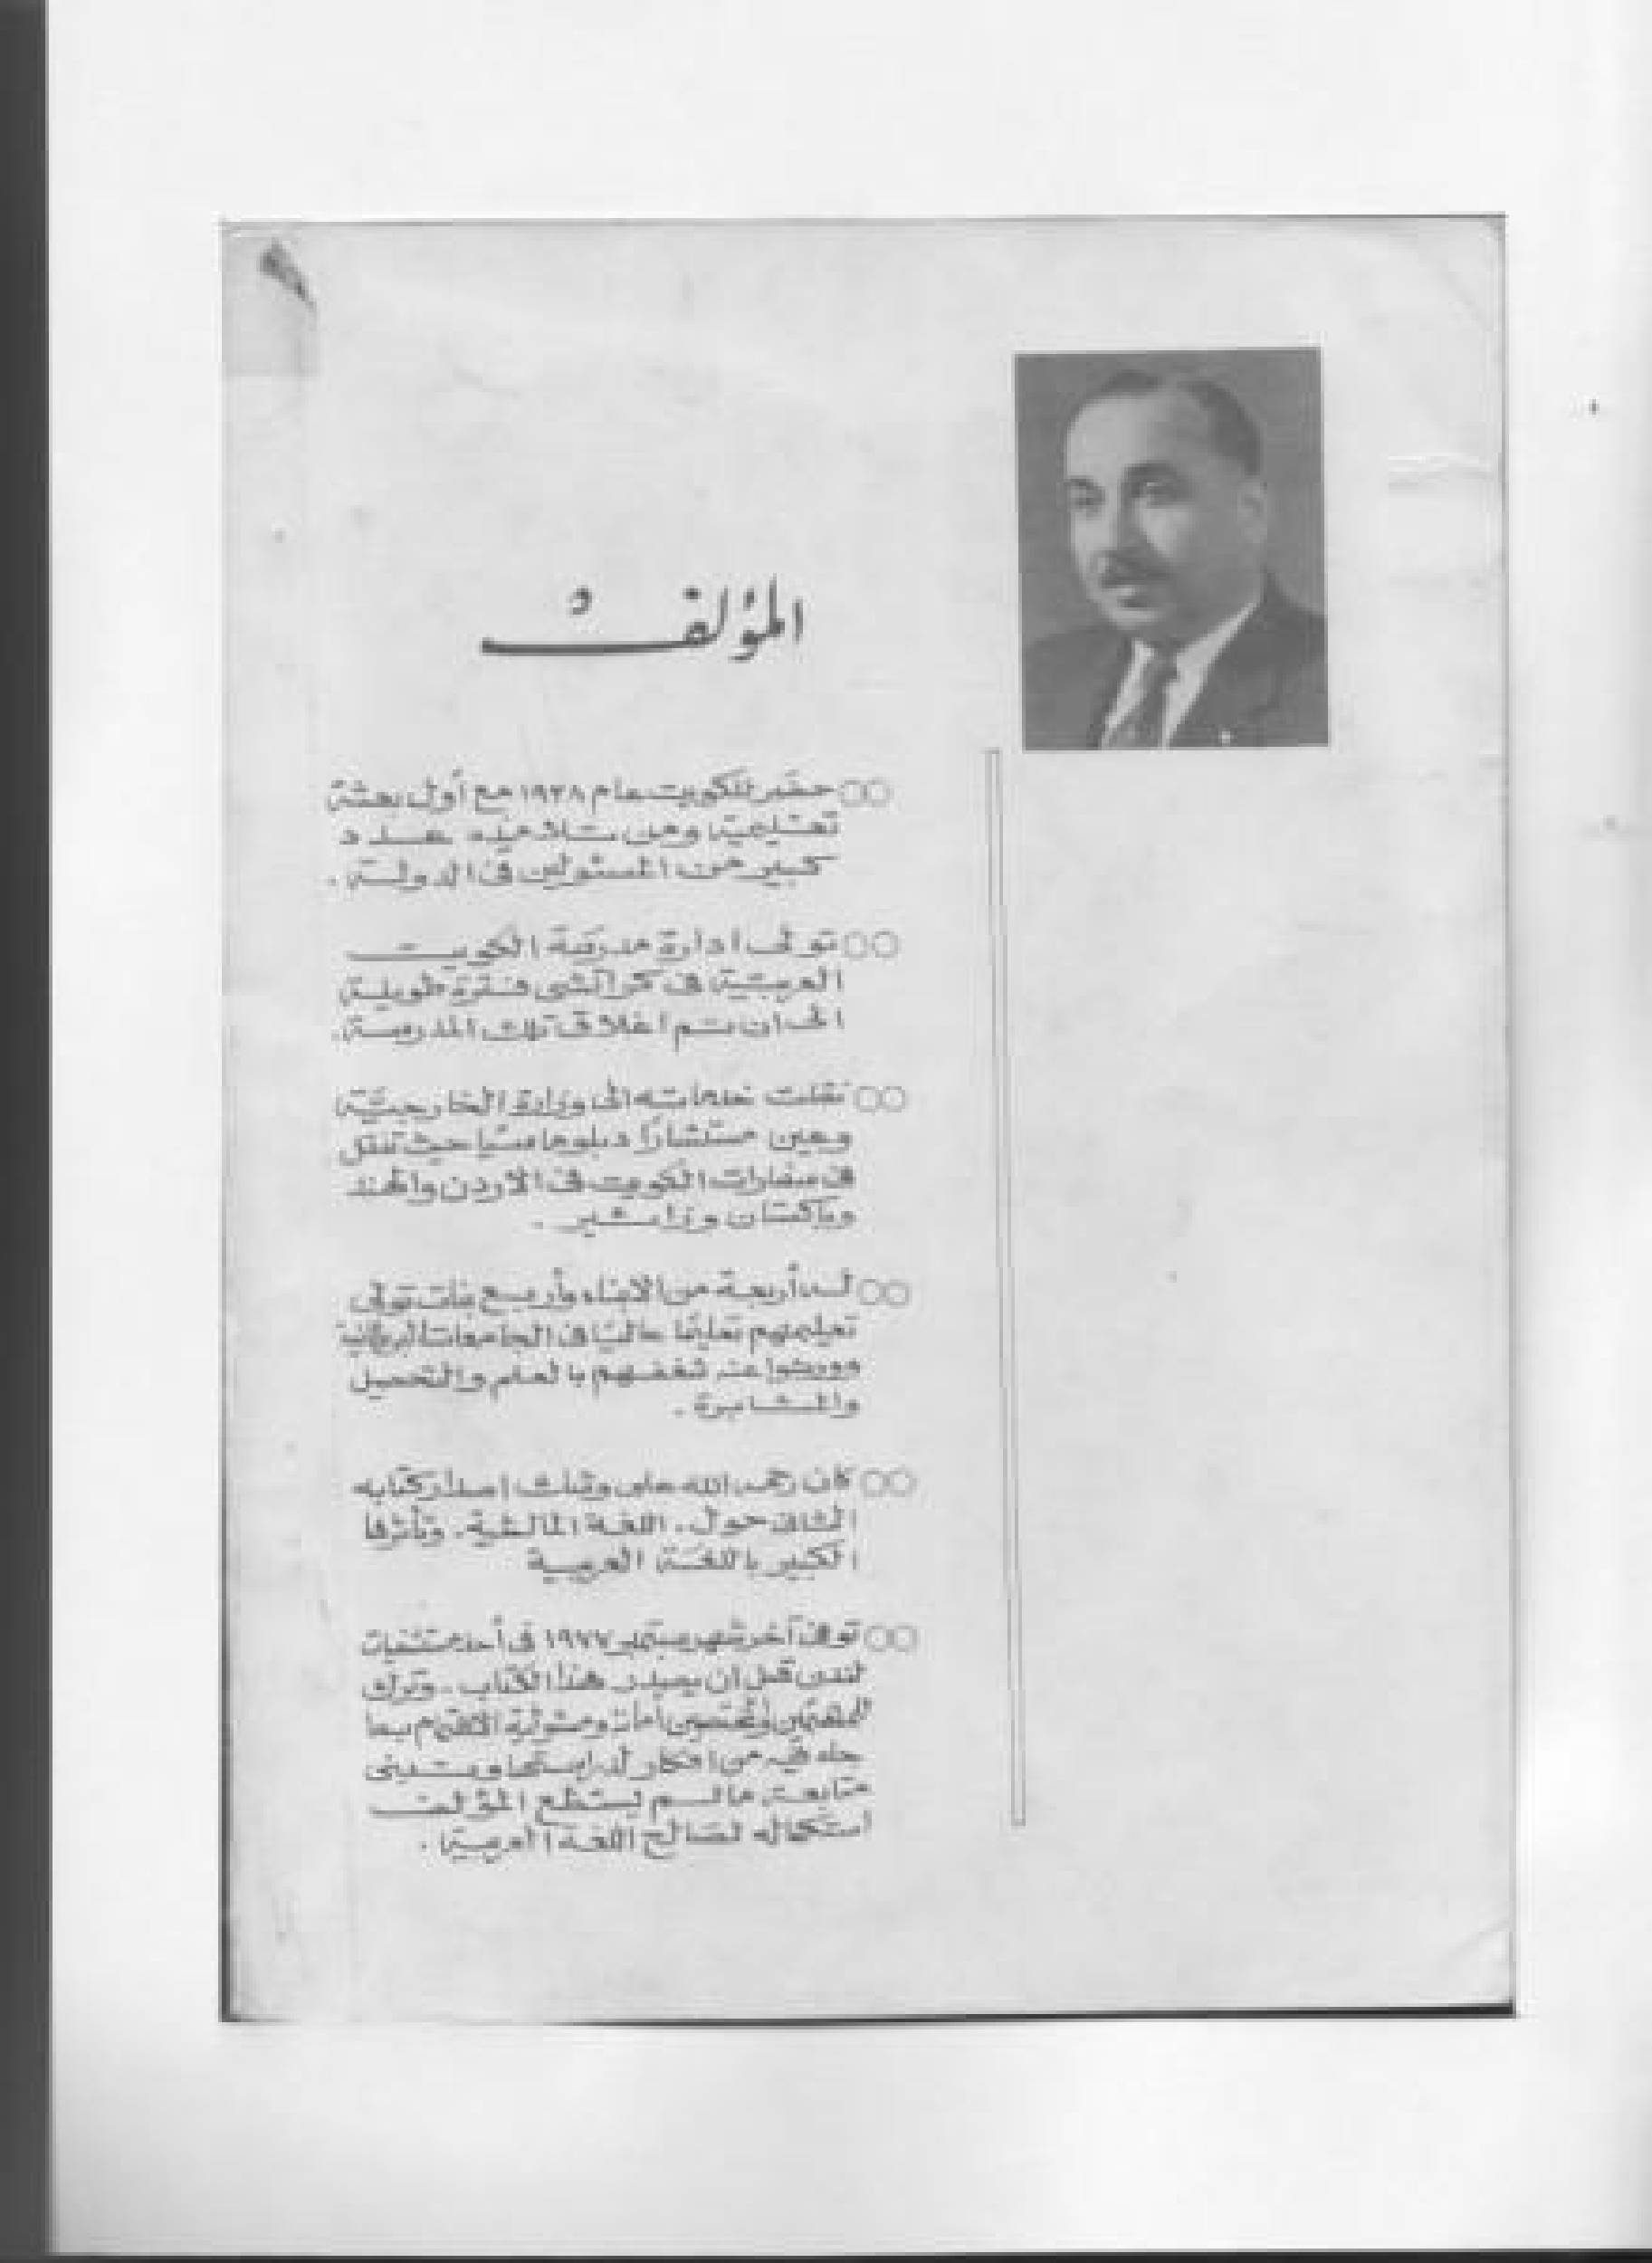 المؤلف
○○ حضر للكويت عام ١٩٣٨ مع أول بعثة
تعليمية ومن تلاميذه عدد
كبير من المسئولين في الدولة .
○○ تولى ادارة مدرسة الكويت
العربية في كراتشي فترة طويلة
الى ان تم اغلاق تلك المدرسة .
○○ نقلت خدماته الى وزارة الخارجية
وعين مستشارًا دبلوماسيًا حيث تنقل
في سفارات الكويت في الاردن والهند
وباكستان وزائير .
○○ له أربعة من الابناء وأربع بنات تولى
تعليمهم تعليمًا عاليًا في الجامعات البريطانية
وورثوا عنه شغفهم بالعلم والتحصيل
والمثابرة .
○○ كان رحمه الله على وشك اصدار كتابه
الثاني حول . اللغة المالطية . وتأثرها
الكبير باللغة العربية
○○ توفي آخر شهر سبتمبر ١٩٧٧ في أحد مستشفيات
لندن قبل ان يصدر هذا الكتاب . وترك
للمهتمين والمختصين أمانة ومسئولية الاهتمام بما
جاء فيه من افكار لدراستها وتبني
متابعة ما لم يستطع المؤلف
استكماله لصالح اللغة العربية .